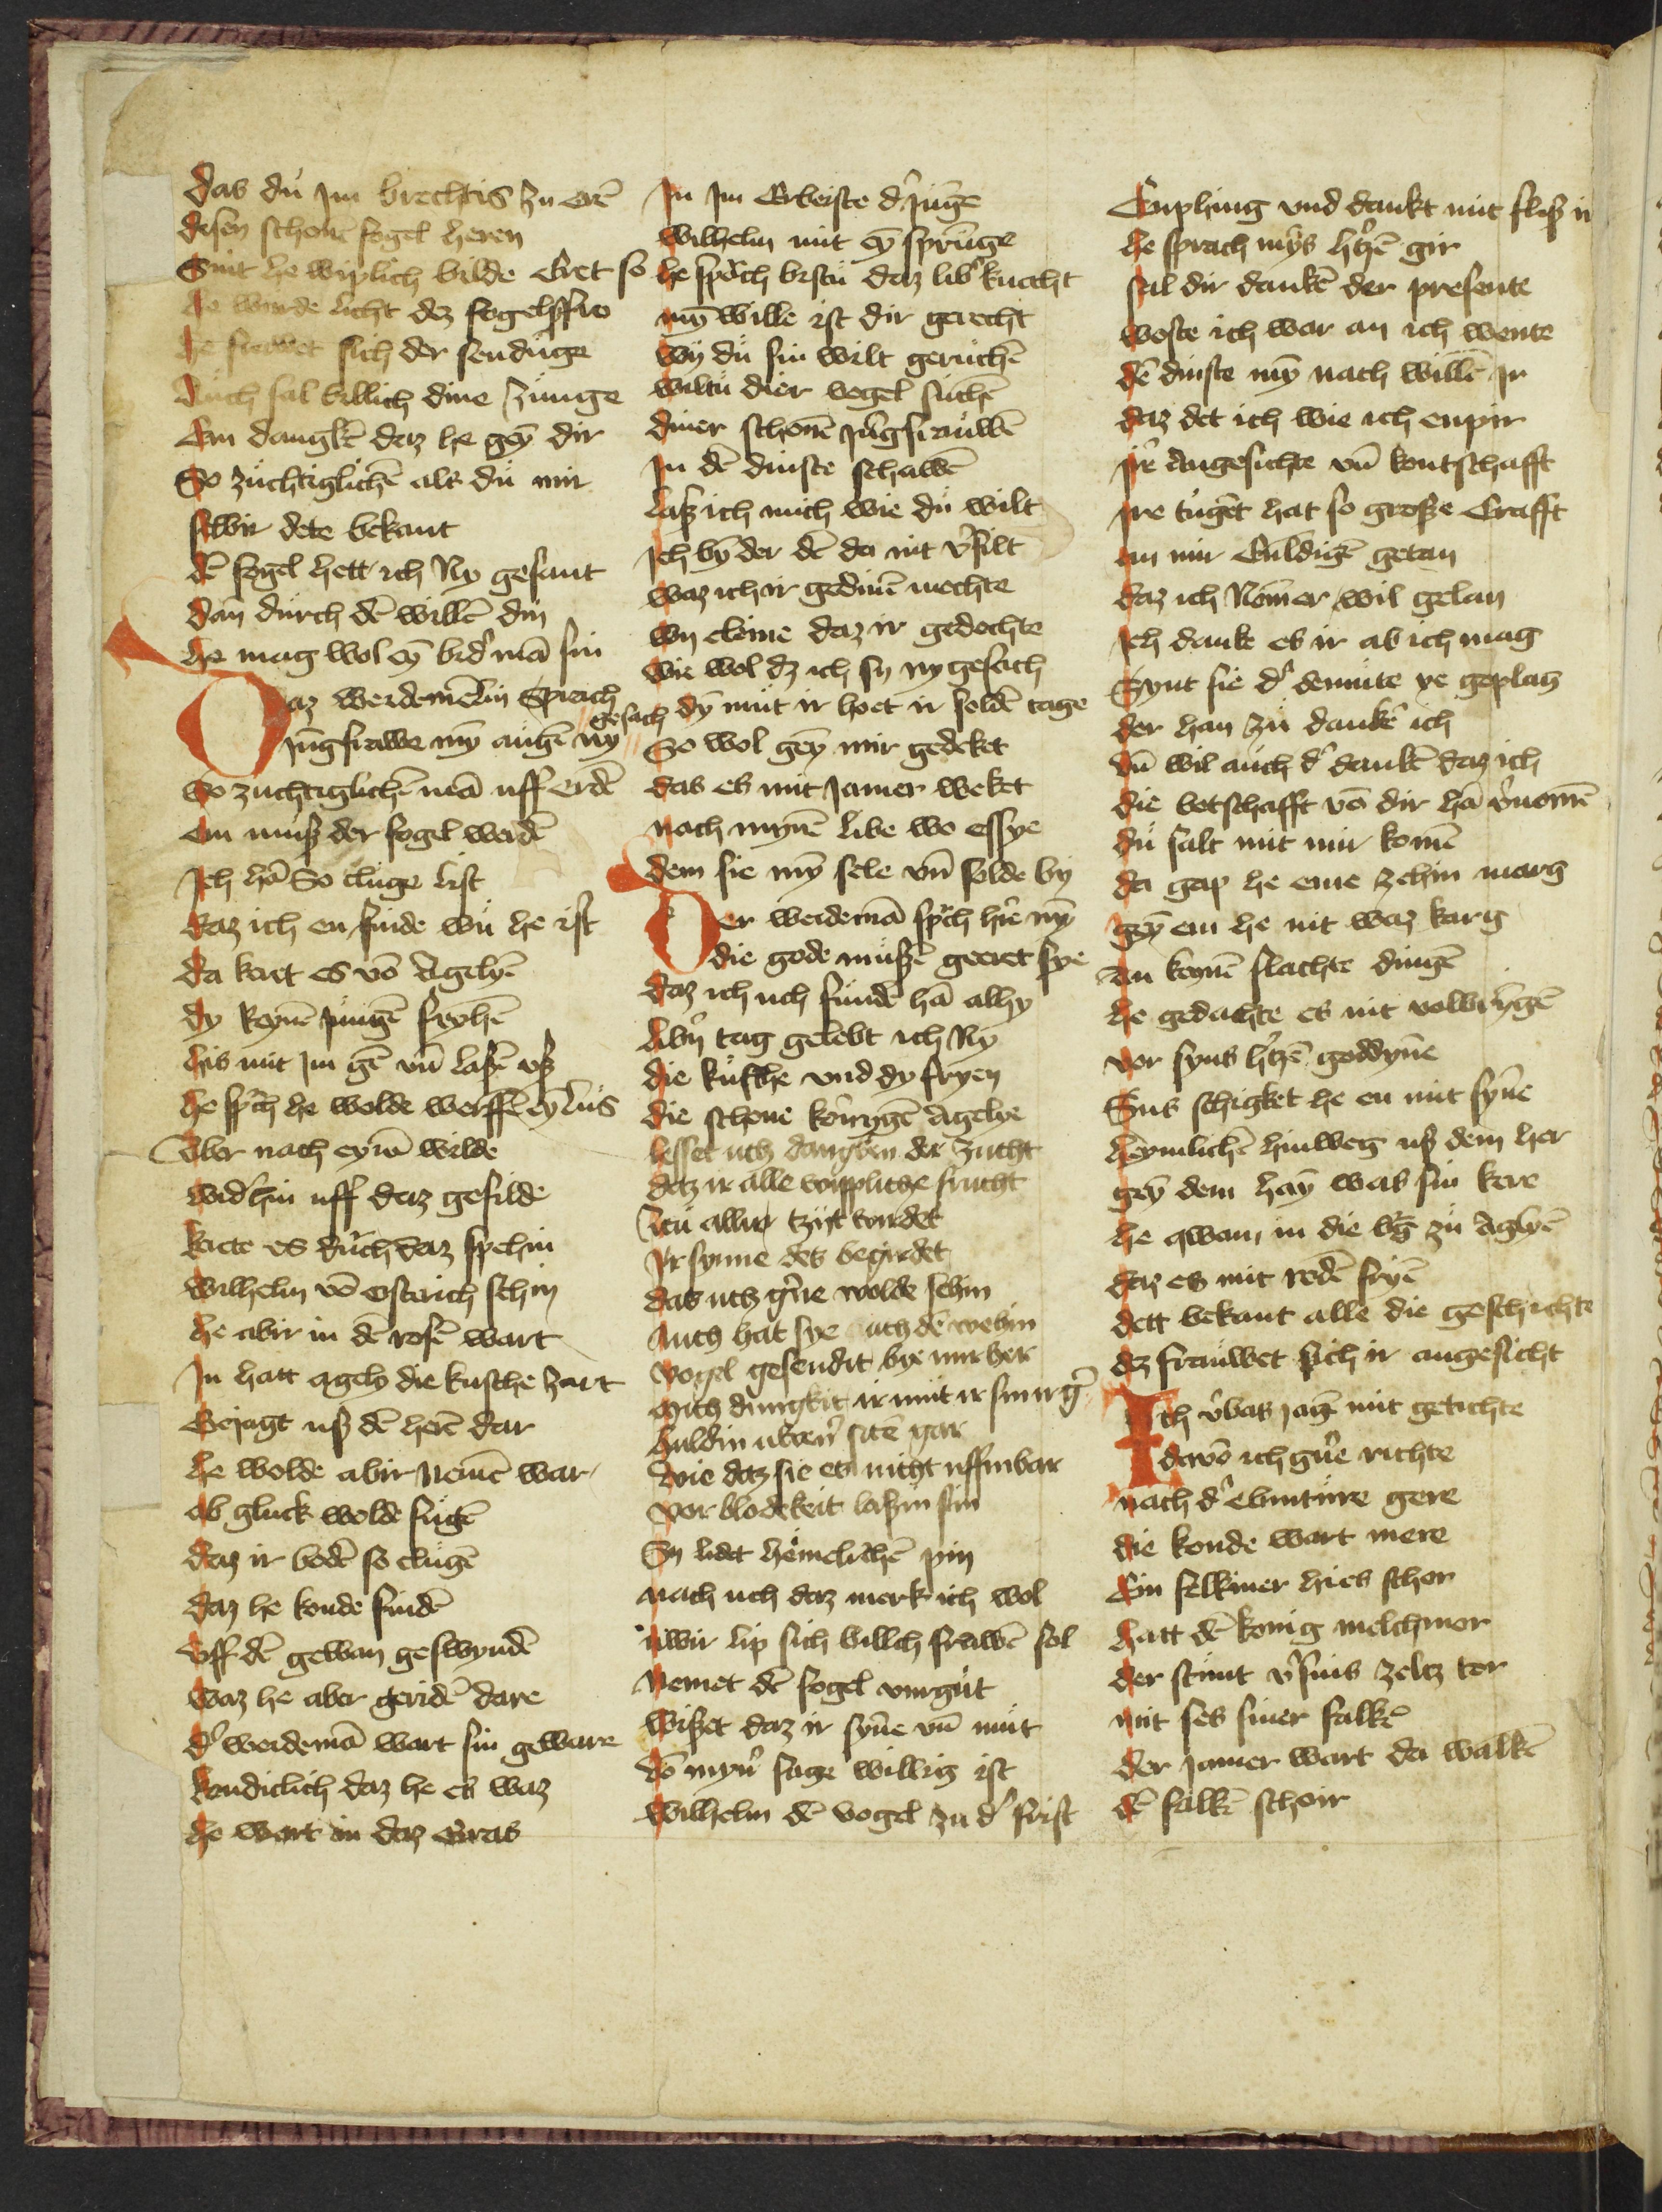 das du im brechtis zu erē
disen schonē fogel heren
Sint he wiplich bilde Eret so
he wurde licht dez fogelß fro
he frowet sich der sendūge
Auch sal billich dine zunge
Em dangkē daz he gey̅ dir
So zuchtiglichē als du mir
siwir dete bekant
dē fogel hett ich Ny gesant
dan durch dē willē din
he mag wol ey̅ bid' mā sin
Daz werdemelin sprach
Jūgfrawe my̅ augē ny gesach
So zuchtiglichē mā uff erdē
em muß der fogel werdē
Ich hā So cluge list
daz ich en finde wu he ist
da bart es vō Agelyē
dy keynē jungē fryhē
lis mit im gē vn̄ lasē vß
he sp'ch he wolde werffē ey̅ lus
Aber nach eyṁ wilde
wid' hin uff daz gefilde
karte es durch daz spehin
wilhelm vō osterich sehin
he abir in dē rosē wart
In hatt agely die kusche zart
Bejagt uß dē herē dar
he wolde abir nemē war
ob gluck wolde fugē
daz ir bodē so clugē
daz he konde findē
Vff dē gewan geswyndē
waz he aber geridē dare
d' weidemā wart sin geware
kondiclich daz he es waz
he wart in daz Gras
In im Erbeiste d' jungē
wilhelm mit ey̅ sprunge
he sp'ch bistu daz lib' knecht
my̅ wille ist dir gerecht
wy du sin wilt geruchē
wiltu dier vogel suchē
diner schonē jūgfrauwē
In dē dinste schawē
laß ich mich wie du wilt
Ich by̅ der dē da nit v'filt
waz ich ir gedinē mochte
wy cleine daz ir gedochte
wie wol dz ich sy ny gesach
dy̅ mut ir hoet ir soldē tage
So wol gey̅ mir gedeket
das es mit jamer weket
nach mynē libe wo essye
dem sie my̅ sele vn̄ solde by
Der weidemā sp'ch h're my̅
die gode mußē geeret sye
daz ich uch fundē hā alhy
liby̅ tag gelebt ich Ny
die kusche vnd dy fryen
die schone konygē Agelye
lesset uch dangkē der zucht
daz ir alle wipliche frucht
zcu allir tzijt wirdet
Ir synne des begirdet
das uch g'ne wolde sehin
Auch hat sye uch dē wehin
vogel gesendit bye mir her
Mich dungkit ir mut ir sin ir g'
huldin uwer' sitē gar
Wie daz sie es nicht uffinbar
vor blodekeit laßin sin
Sy lidet hemelichē pin
nach uch daz merk ich wol
uwir lip sich billch frawē sol
Nemet dē fogel vmgut
wißet daz ir syne vn̄ mut
vō myn' sage willig ist
Wilhelm dē vogel zu d' frist
Enpfing vnd dankt mit fliß ir
he sprach my̅s h'tzē gir
sal dir dankē der presente
woste ich war an ich wente
dē dinste my̅ nach willē ir
daz det ich wie ich enpir
ir' Angesichte vn̄ kontschafft
ire tugēt hat so große Crafft
an mir Guldigē getan
daz ich Nomer wil gelan
Ich danke es ir ab ich mag
Synt sie d' demute ye geplag
der han zu dankē ich
vn̄ wil auch d' dankē daz ich
die botschafft vō dir hā v'nomē
du salt mit mir komē
da gap he eme zehin marg
gey̅ em he nit waz karg
An keynē slachte dingē
he gedachte es nit volbrīgē
vor syns h'tzē goddyne
Sus schigket he en mit syne
heymlichē hinweg uß dem her
gey̅ dem hay̅ was sin kere
he qwam in die b'g zu Aglyē
daz es mit redē fryē
dett bekant alle die geschichte
dz frauwet sich ir angesicht
Ich v'bas jagē mit getichte
davō ich g'ne richte
nach d' ebinture gere
die konde wart mere
Ein felkiner hies schor
hatt dē konig melchmor
der stunt v' sins zeltz tor
mit ses siner falkē
der jamer wart da walkē
dē falkē schoir